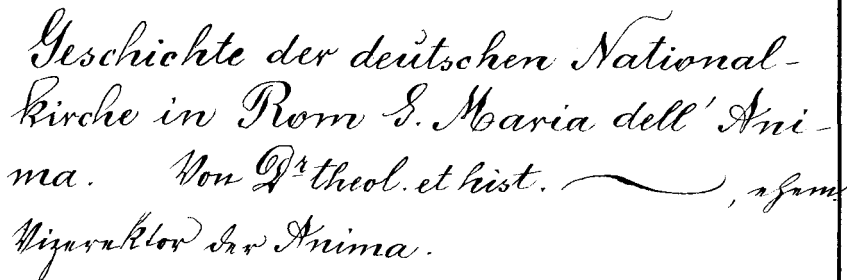 Geschichte der deutschen National-
kirche in Rom S. Maria dell' Ani-
ma. Von Dr theol. et hist. ———, ehem.
Vizerektor der Anima.